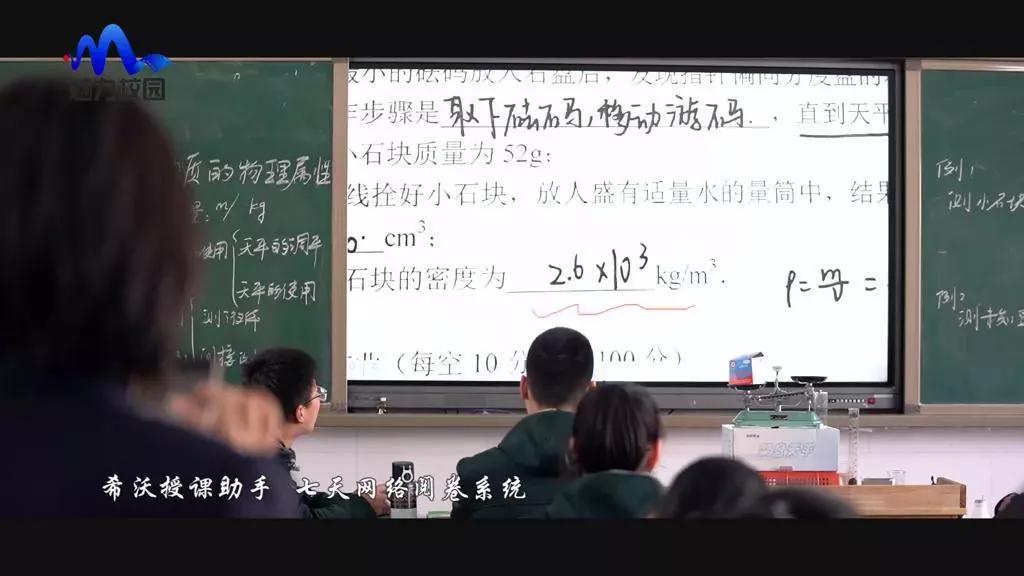 校园
质的物理属性
m/ kg
使用 天平的调平
天平的使用
最小的砝码放入右盘后，发现指针偏向分度盘的
步骤是取下砝码，移动游码.，直到天平
小石块质量为 52g；
线拴好小石块，放人盛有适量水的量筒中，结果
cm³；
石块的密度为 2.6×10³ kg/m³.
ρ=m/v=
（每空 10 分 100 分）
例1
测小石块
例2
希沃授课助手 七天网络阅卷系统